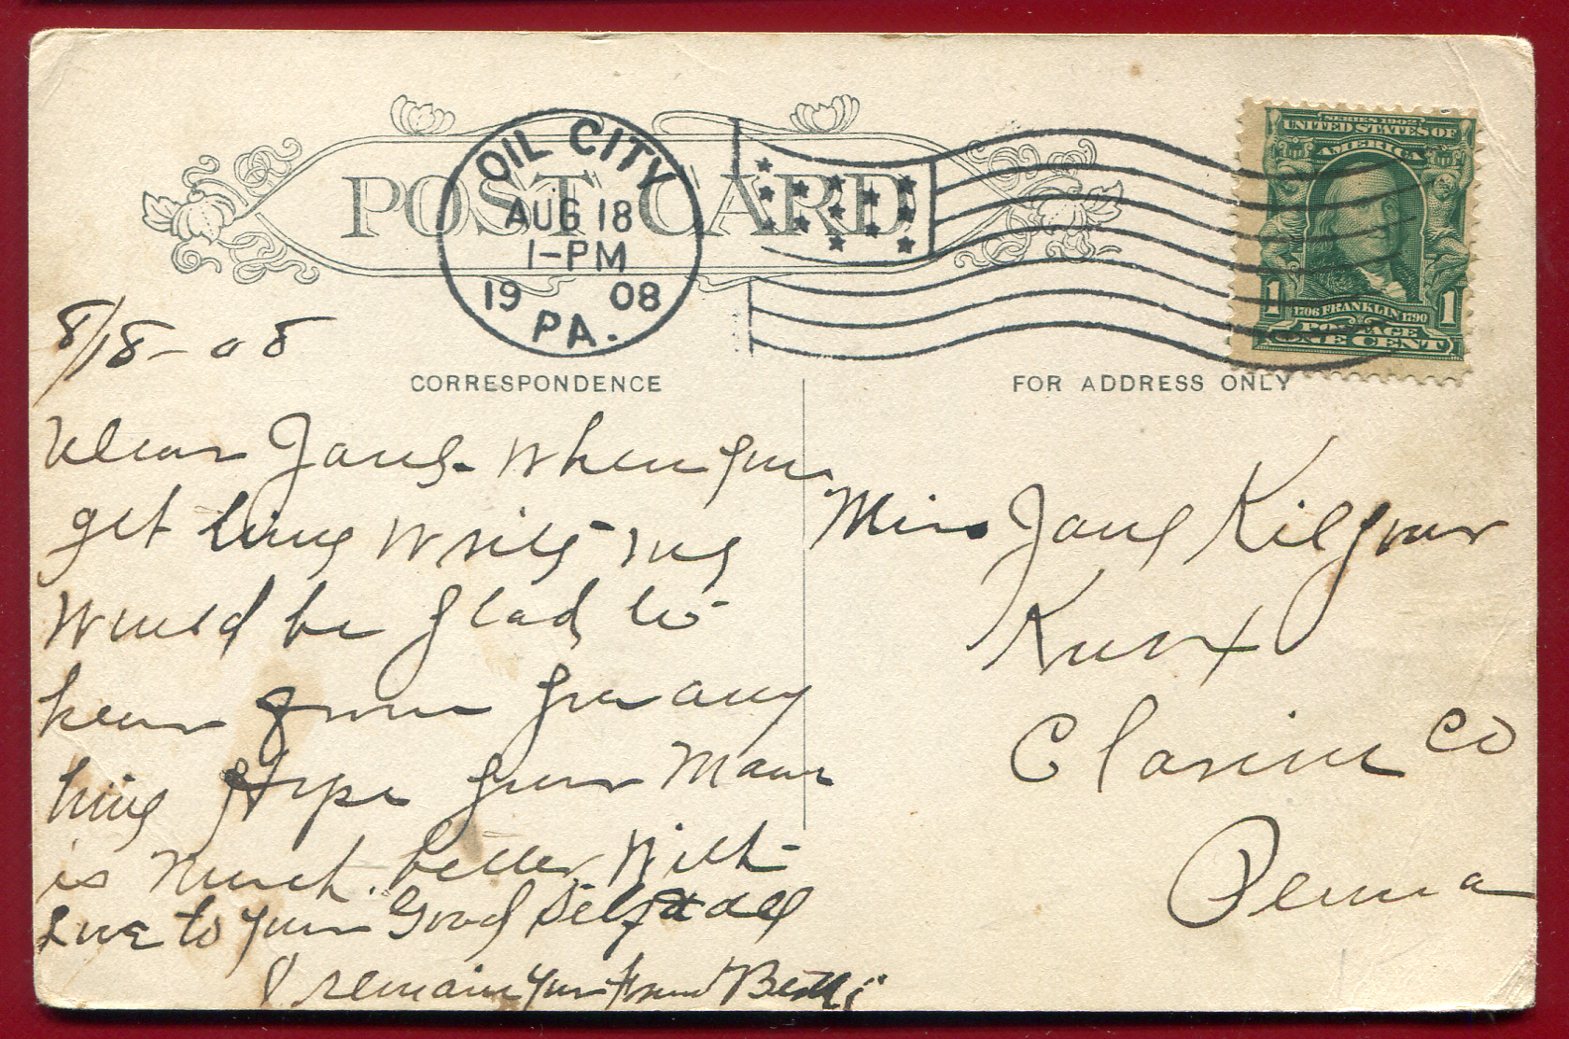 POST CARD
OIL CITY
AUG 18
1-PM
19 08
PA.
SERIES 1902
UNITED STATES OF
AMERICA
1 1706 FRANKLIN 1790 1
POSTAGE
ONE CENT
8/18-08
CORRESPONDENCE
FOR ADDRESS ONLY
Dear Jane. When you
get time write me
Would be glad to
hear from you any
time Hope your Mama
is Much better, With
Love to your Good Self & all
I remain your friend
Miss Jane Kilgour
Knox
Clarion Co
Penna